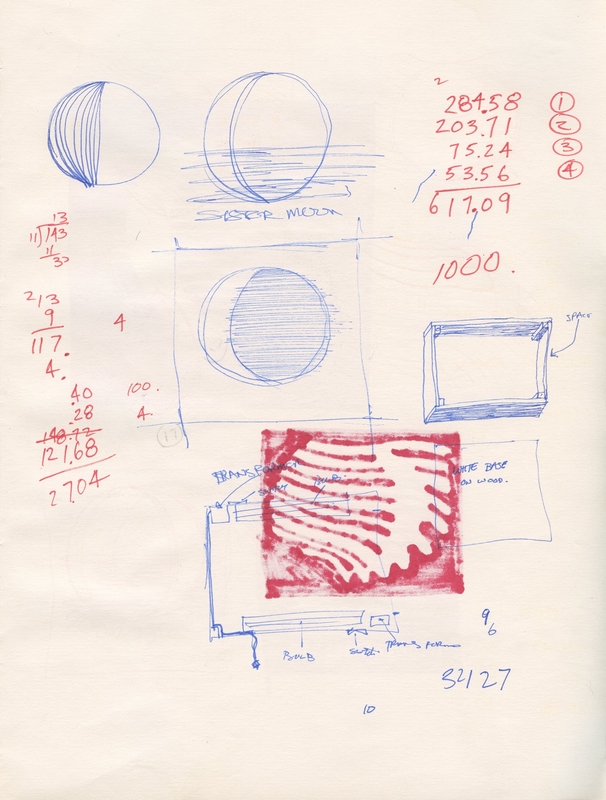 2
284.58 ①
203.71 ②
75.24 ③
53.56 ④
617.09
1000.
SISTER MOON
13
11)143
11
30
213
9
117.
4
4.
.40 100.
.28 4.
148.72
121.68
2704
17
SPACE
TRANSFORMER
BULB
WHITE BASE
ON WOOD.
BULB
TRANSFORM
9
6
32127
10